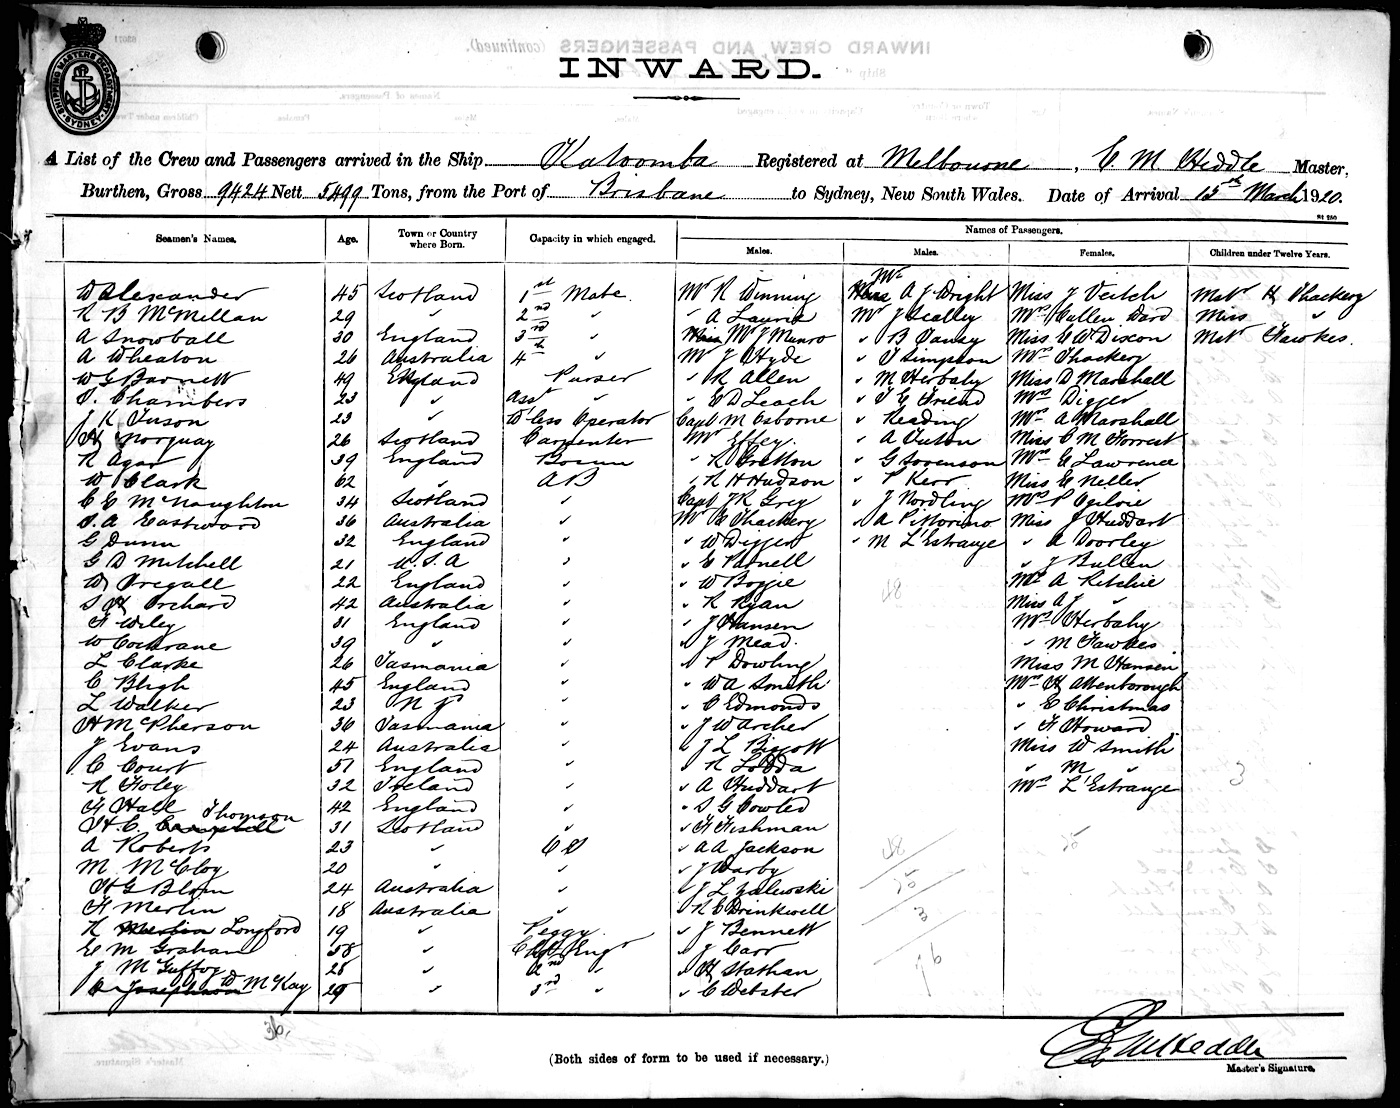 INWARD.
SHIPPING MASTERS DEPARTMENT SYDNEY
A List of the Crew and Passengers arrived in the Ship Katoomba Registered at Melbourne, E. M. Heddle Master,
Burthen, Gross 9424 Nett 5499 Tons, from the Port of Brisbane to Sydney, New South Wales. Date of Arrival 15th March 1920.
St 250
Seamen's Names. Age. Town or Country where Born. Capacity in which engaged. Names of Passengers.
Males. Males. Females. Children under Twelve Years.
W Alexander 45 Scotland 1st Mate. Mr R Winning Mr A J Wright Miss J Veitch Mstr H Thackery
R B McMillan 29 " 2nd " " A Laurie Mr J Scalley Mrs Cullen Ward Miss "
A Snowball 30 England 3rd " Mr J Munro " B Vausy Miss E W Dixon Mstr Fawkes.
A Wheaton 26 Australia 4th " Mr J Hyde " T Simpson Mrs Thackery
W G Barnett 49 England Purser " R Allen " M Herbaly Miss D Marshall
S. Chambers 23 " Asst " " E D Leach " T E Friend Mrs Digger
J R Tuson 23 " W'less Operator Capt M Osborne " Reading Mrs A Marshall
H Norquay 26 Scotland Carpenter Mr Effey. " A Tuton Miss C M Forrest
R Agar 39 England Bosun " R Gratton " G Sorenson Mrs E Lawrence
W Clark 62 " AB " R H Hudson " P Kerr Miss E Neller
C E McNaughton 34 Scotland " Capt J R Grey " J Nordling Mrs P Ogilvie
S. A Eastwood 36 Australia " Mr E Thackery " A Pittorino Miss J Huddart
G Dunn 32 England " " W Digger " M L'Estrange " A Doorley
G D Mitchell 21 U.S.A " " E Parnell " J Bullen
W Tregall 22 England " " W Boggie 48 Mrs A Ritchie
S H Orchard 42 Australia " " R Ryan Miss A J "
F Wiley 31 England " " J Hansen Mrs Herbaly
W Cochrane 39 " " " J Mead. " M Fawkes
L Clarke 26 Tasmania " " P Dowling Miss M Hansen
C Bligh 45 England " " W A Smith Mrs H Attenborough
L Walker 23 N Z " " C Edmonds " E Christmas
H McPherson 36 Tasmania " " J W Archer " F Howard
J Evans 24 Australia " " J L Biggott Miss W Smith
C Court 51 England " " R Lodda " M "
R Foley 32 Ireland " " A Huddart Mrs L'Estrange 3
F Hall 42 England " " S G Cowled
H. C. Campbell Thomson 31 Scotland " " H Fishman
A Roberts 23 " OS " A A Jackson 48 25
M McCloy 20 " " " J Warby
H G Blom 24 Australia " " J L Zalewski 25
H Merlin 18 Australia " " R C Drinkwell
R Merlin Longford 19 " Peggy. " J Bennett 3
E M Graham 58 " Chief Engr " J Carr
J McGuffog 28 " 2nd " " H Stathan 76
Josephson W McKay 29 " 3rd " " C Webster
36.
(Both sides of form to be used if necessary.)
E M Heddle
Master's Signature.